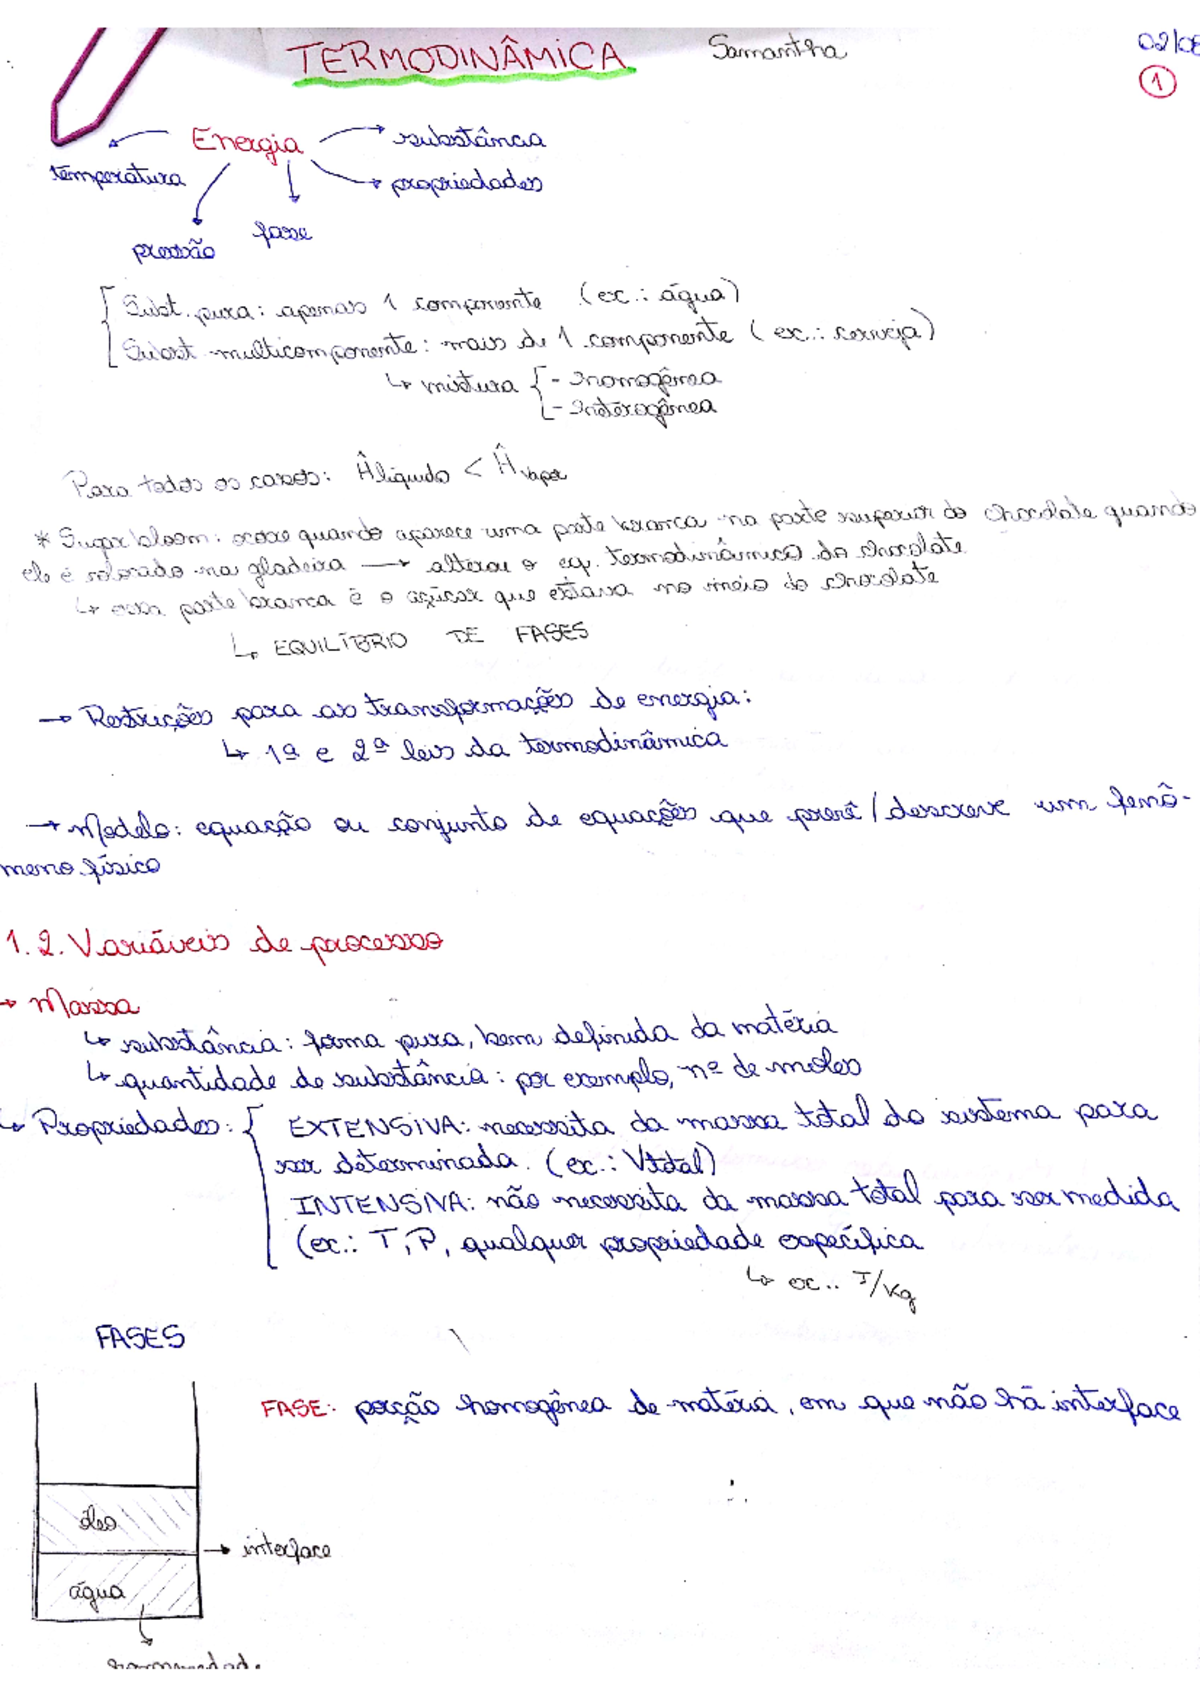 TERMODINÂMICA
Samantha
02/08
1
Energia
substância
temperatura
propriedades
fase
pressão
Subst. pura: apenas 1 componente (ex.: água)
Subst multicomponente: mais de 1 componente (ex.: cerveja)
↳ mistura { - Homogênea
- Heterogênea
Para todos os casos: Ĥlíquido < Ĥvapor
* Sugar bloom: ocorre quando aparece uma parte branca na parte superior do chocolate quando
ele é colocado na geladeira → alterou o eq. termodinâmico do chocolate
↳ essa parte branca é o açúcar que estava no meio do chocolate
↳ EQUILÍBRIO DE FASES
→ Restrições para as transformações de energia:
↳ 1ª e 2ª leis da termodinâmica
→ Modelo: equação ou conjunto de equações que prevê/descreve um fenô-
meno físico
1.2. Variáveis de processo
→ Massa
↳ substância: forma pura, bem definida da matéria
↳ quantidade de substância: por exemplo, nº de moles
↳ Propriedades: { EXTENSIVA: necessita da massa total do sistema para
ser determinada. (ex.: Vtotal)
INTENSIVA: não necessita da massa total para ser medida
(ex.: T, P, qualquer propriedade específica
↳ ex.. J/kg
FASES
FASE: porção homogênea de matéria, em que não há interface
óleo
→ interface
água